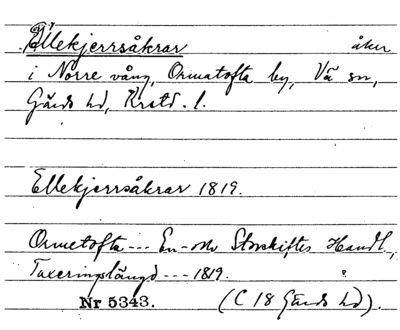 Ellekjerrsåkrar åker
i Norre vång, Ormatofta by, Vä sn,
Gärds hd, Krstd. l.
Ellekjerrsåkrar 1819.
Ormetofta --- En- och Storskiftes Handl.,
Taxeringslängd --- 1819.
Nr 5343. (C 18 Gärds hd).